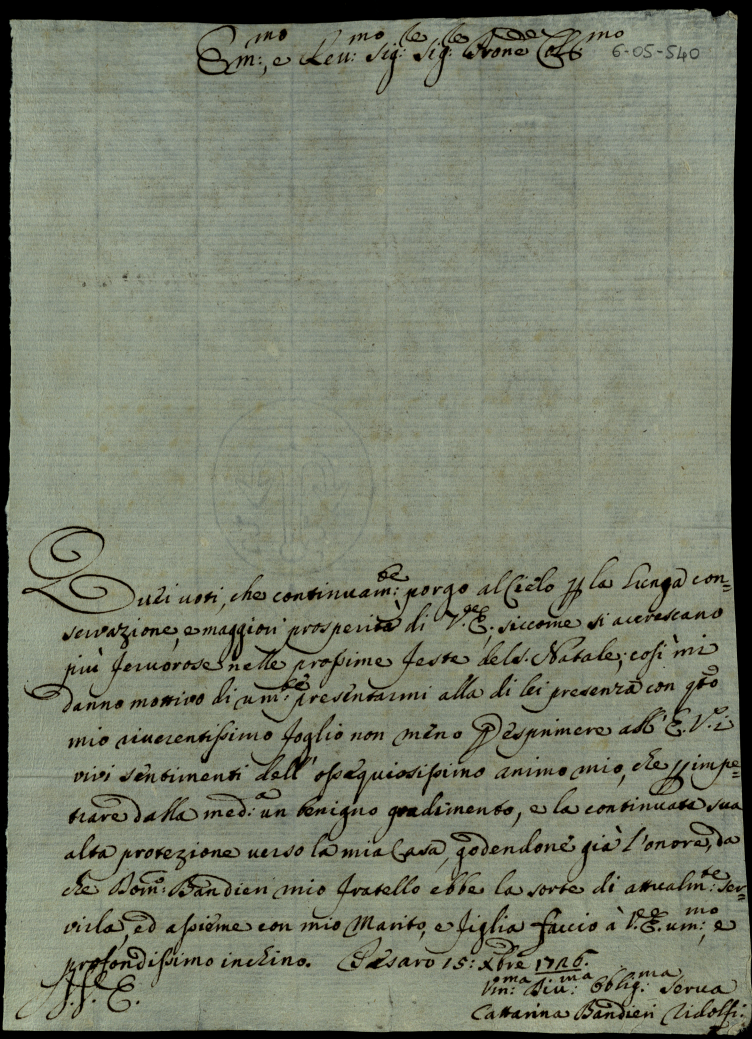 Em:mo, e Reu:mo Sig:re Sig:re Prone Coll:mo 6-05-540
Quei uoti, che continuam:te porgo al Cielo p la lunga con=
seruazione, e maggiori prosperità di V.ra E., siccome si accrescano
più feruorose nelle prossime feste del S. Natale; così mi
danno mottivo di um:te presentarmi alla di lei presenza con qto
mio riuerentissimo foglio non meno p esprimere all' E. V. i
vivi sentimenti dell' ossequiosissimo animo mio, che p impe=
trare dalla med:a un benigno gradimento, e la continuata sua
alta protezione uerso la mia Casa, godendone già l'onore, da
che Dom:co Bandieri mio fratello ebbe la sorte di attualm:te ser=
virla, ed assieme con mio Marito, e figlia faccio à V.ra E. um:mo, e
profondissimo inchino. Pesaro 15: Xbre 1726.
Um:ma Diu:ma Obblig:ma Serua
Cattarina Bandieri Ridolfi: